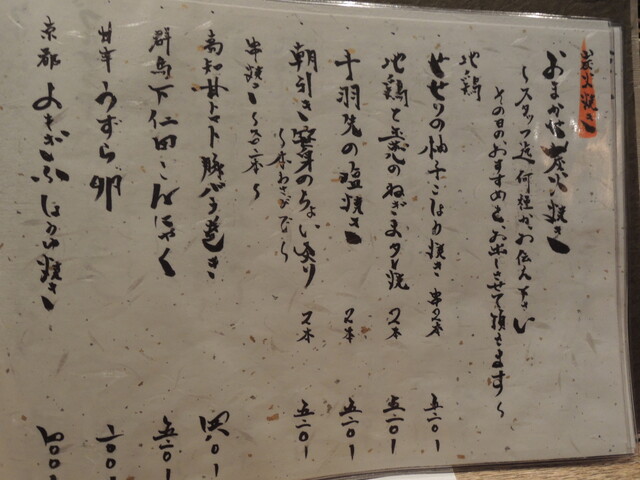 炭火焼き
おまかせ炭火焼き
～スタッフ迄、何種かお伝え下さい
その日のおすすめを、お出しさせて頂きます～
地鶏
せせりの柚子こしょう焼き 串2本 五二〇ー
地鶏と葱のねぎまタレ焼 2本 五二〇ー
手羽先の塩焼き 2本 五二〇ー
朝引き笹身のちょい炙り 2本 五二〇ー
～本わさびで～
串焼き ～各一本～
高知甘トマト豚バラ巻き 四八〇ー
群馬下仁田こんにゃく 五二〇ー
うずら卵
京都よもぎふしょうゆ焼き